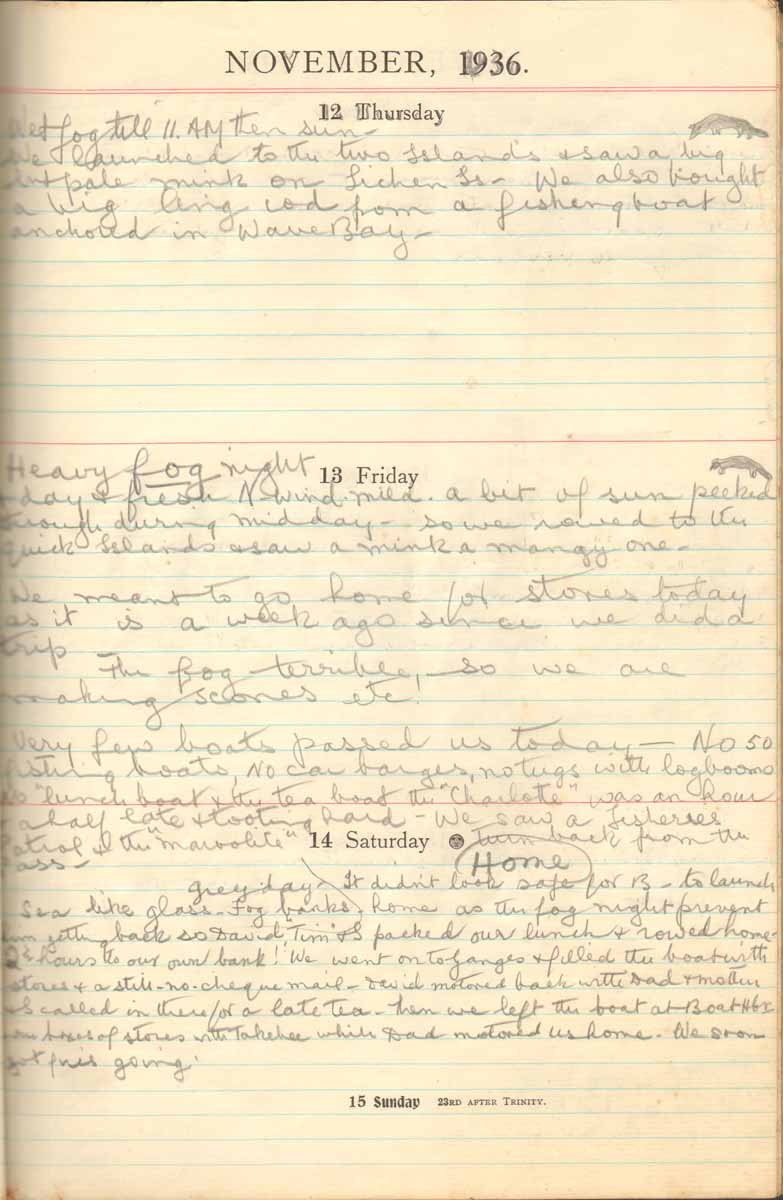 NOVEMBER, 1936.
12 Thursday
Wet fog till 11. AM then sun-
We launched to the two Islands & saw a big
pale mink on Lichen Is- We also bought
a big ling cod from a fishing boat
anchored in Wave Bay-
Heavy fog night
13 Friday
day & fresh N-wind. mild. a bit of sun peeked
through during midday - so we rowed to the
quick Islands & saw a mink a mangy one-
We meant to go home for stores today
as it is a week ago since we did a
trip
The fog terrible, so we are
making scones etc!
Very few boats passed us today - No 50
fishing boats, No car barges, no tugs with logbooms
"lunch boat & the tea boat the "Charlotte" was an hour
& a half late & tooting hard - We saw a fisheries
Patrol & the "Marvolite" turn back from the
14 Saturday
Pass-
Home
grey day- It didn't look safe for B - to launch
Sea like glass- Fog banks. home as the fog night prevent
getting back so David, Tim & I packed our lunch & rowed home-
2½ hours to our own bank! We went on to Ganges & filled the boat with
stores & a still-no-cheque mail- David motored back with Dad & mother
& I called in there for a late tea- then we left the boat at Boat Hbr
boxes of stores with Takebee while Dad motored us home. We soon
got going.
15 Sunday 23RD AFTER TRINITY.